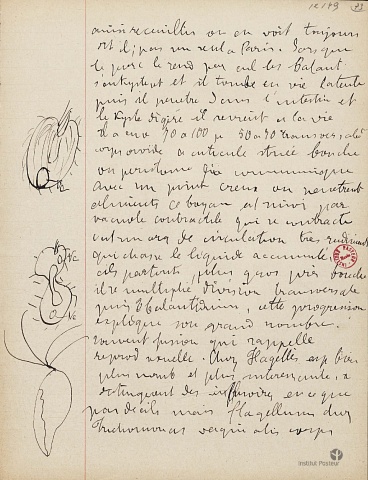 12149
ainsi recueillies ou on voit toujours
pas un seul a Paris. Lorsque
le porc le rend par cul les Balant.
s'enkystent et il tombe en vie latente
puis il penetre dans l'intestin et
le Kyste digéré il revient a la vie
Il a env 70 a 100 µ 50 a 70 transversalt
corps ovoide a cuticule striée bouche
ou peristome
avec un point creux ou penetrent
aliments ce boyau est suivi par
vacuole contractile qui se contracte
de circulation tres rudiment
qui chasse le liquide accumulé
cils partout, plus gros près bouche
il se multiplie division transversale
puis 2 balantidium, cette progression
explique son grand nombre.
souvent fusion qui rappelle
reprod sexuelle. Chez Flagellés esp bien
plus nomb et plus interessante, se
distinguant des infusoires en ce que
pas de cils mais flagellum chez
Trichomonas vaginalis corps
Institut Pasteur